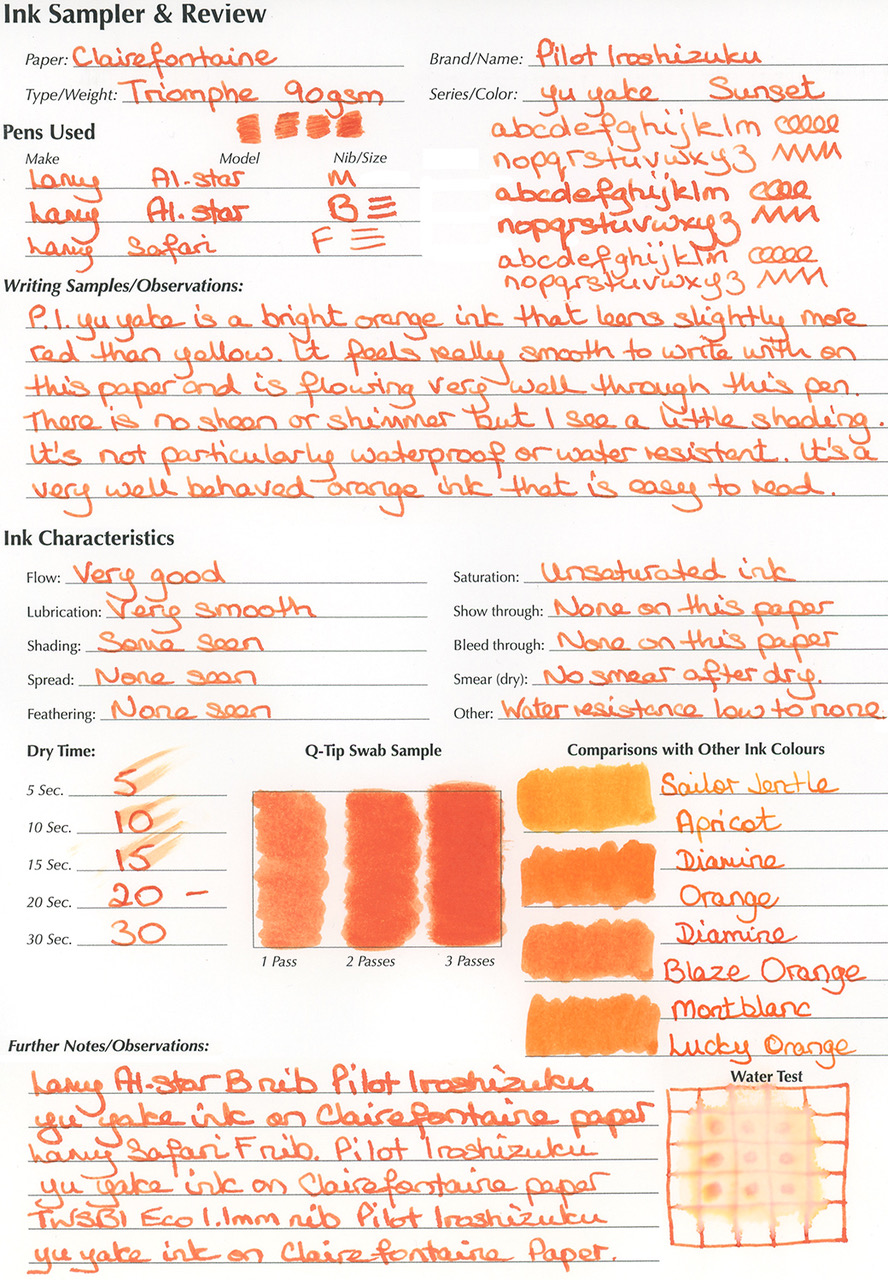 Ink Sampler & Review
Paper: Clairefontaine
Brand/Name: Pilot Iroshizuku
Type/Weight: Triomphe 90gsm
Series/Color: yu yake Sunset
Pens Used
Make Model Nib/Size
Lamy Al-star M
Lamy Al-star B
Lamy Safari F
abcdefghijklm
nopqrstuvwxyz
abcdefghijklm
nopqrstuvwxyz
abcdefghijklm
nopqrstuvwxyz
Writing Samples/Observations:
P.I. yu yake is a bright orange ink that leans slightly more
red than yellow. It feels really smooth to write with on
this paper and is flowing very well through this pen.
There is no sheen or shimmer but I see a little shading.
It's not particularly waterproof or water resistant. It's a
very well behaved orange ink that is easy to read.
Ink Characteristics
Flow: Very good
Lubrication: Very smooth
Shading: Some seen
Spread: None seen
Feathering: None seen
Saturation: Unsaturated ink
Show through: None on this paper
Bleed through: None on this paper
Smear (dry): No smear after dry.
Other: Water resistance low to none
Dry Time:
5 Sec. 5
10 Sec. 10
15 Sec. 15
20 Sec. 20 –
30 Sec. 30
Q-Tip Swab Sample
1 Pass 2 Passes 3 Passes
Comparisons with Other Ink Colours
Sailor Jentle
Apricot
Diamine
Orange
Diamine
Blaze Orange
Montblanc
Lucky Orange
Further Notes/Observations:
Lamy Al-star B nib Pilot Iroshizuku
yu yake ink on Clairefontaine paper
Lamy Safari F nib. Pilot Iroshizuku
yu yake ink on Clairefontaine paper
TWSBI Eco 1.1mm nib Pilot Iroshizuku
yu yake ink on Clairefontaine Paper.
Water Test